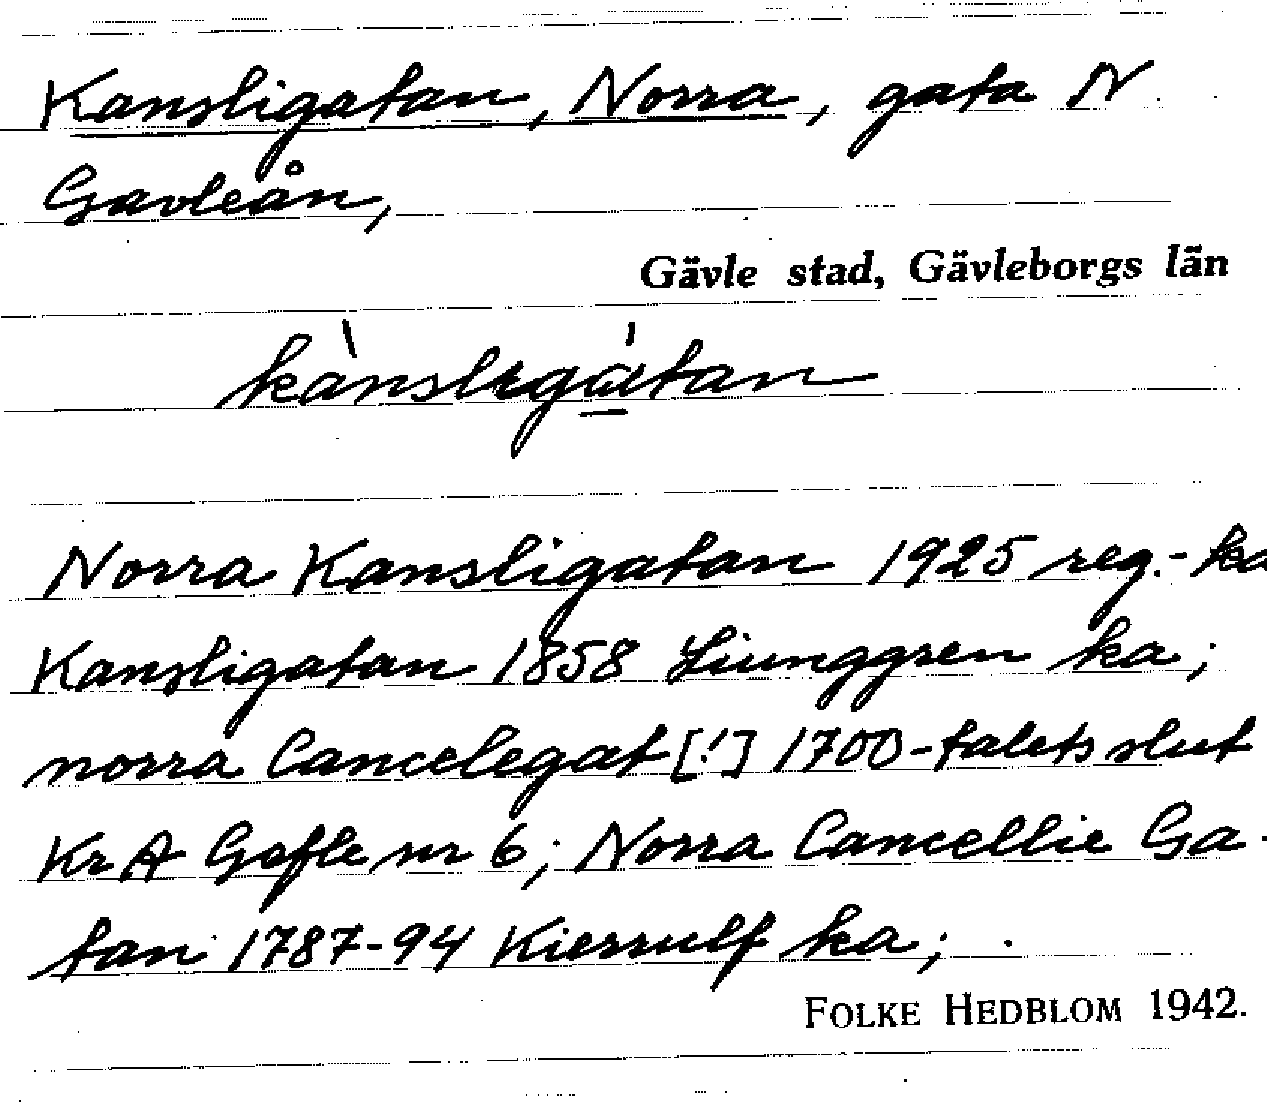 Kansligatan, Norra, gata N
Gavleån,
Gävle stad, Gävleborgs län
kànsligátan
Norra Kansligatan 1925 reg.-ka
Kansligatan 1858 Ljunggren ka;
norra Cancelegat [!] 1700-talets slut
KrA Gefle nr 6; Norra Cancellie Ga-
tan 1787-94 Kierrulf ka;
FOLKE HEDBLOM 1942.